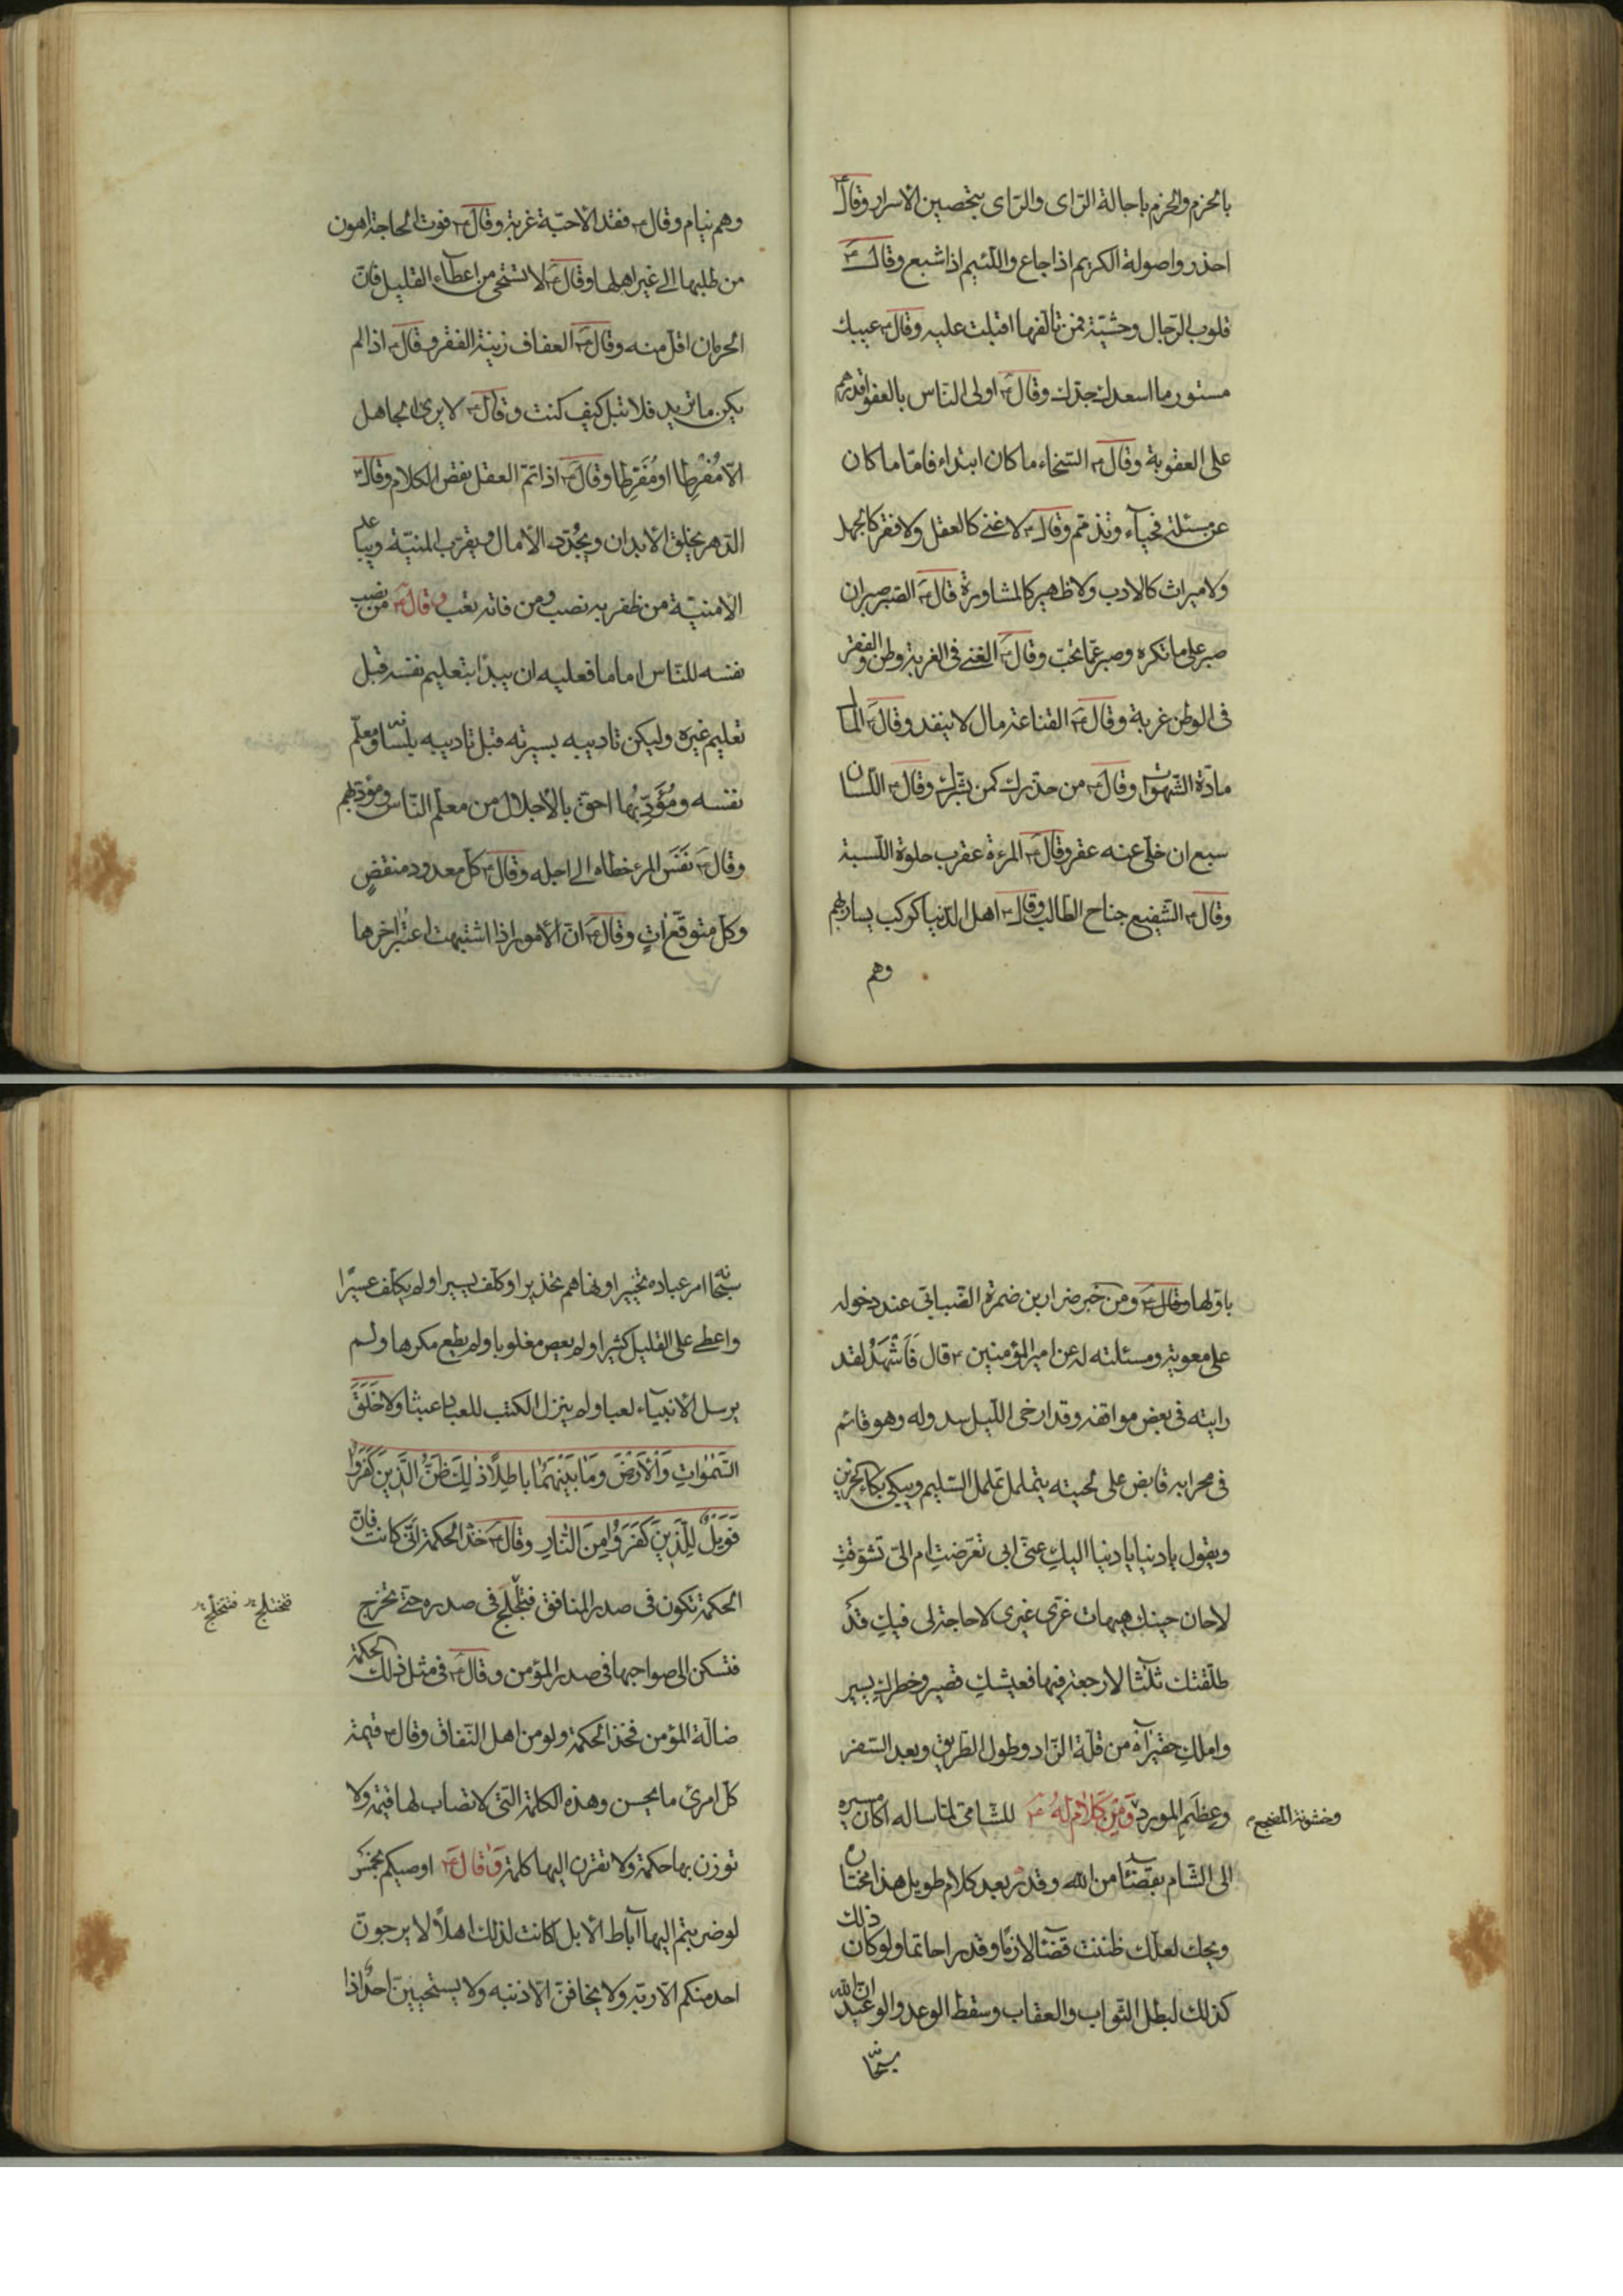 بالحزم والحزم باجالة الرّاى والرّاى بتحصين الأسرار وقالَ ؑ
احذروا صولة الكريم اذا جاع واللّئيم اذا شبع وقالَ ؑ
قلوب الرّجال وحشيّة فمن تالّفها اقبلت عليه وقالَ ؑ عيبك
مستور ما اسعدك جدّك وقالَ ؑ اولى النّاس بالعفو اقدرهم
على العقوبة وقالَ ؑ السّخاء ما كان ابتداء فامّا ما كان
عن مسئلة فحيآء وتذمّم وقالَ ؑ لا غنى كالعقل ولا فقر كالجهل
ولا ميراث كالادب ولا ظهير كالمشاورة قالَ ؑ الصّبر صبران
صبر على ما تكره وصبر عمّا تحبّ وقالَ ؑ الغنى فى الغربة وطن والفقر
فى الوطن غربة وقالَ ؑ القناعة مال لا ينفد وقالَ ؑ المال
مادّة الشّهوات وقالَ ؑ من حذّرك كمن بشّرك وقالَ ؑ اللّسان
سبع ان خلّى عنه عقر وقالَ ؑ المرءة عقرب حلوة اللّسبة
وقالَ ؑ الشّفيع جناح الطّالب وقالَ ؑ اهل الدّنيا كركب يسار بهم
وهم
وهم نيام وقال ؑ فقد الأحبّة غربة وقالَ ؑ فوت الحاجة اهون
من طلبها الى غير اهلها وقالَ ؑ لا تستحى من اعطآء القليل فانّ
الحرمان اقلّ منه وقالَ ؑ العفاف زينة الفقر وقالَ ؑ اذا لم
يكن ما تريد فلا تبل كيف كنت وقالَ ؑ لا يرى الجاهل
الّا مُفْرِطا او مُفَرِطا وقالَ ؑ اذا تمّ العقل نقص الكلام وقالَ ؑ
الدّهر يخلق الأبدان ويجُدّد الأمال ويقرّب المنيّة ويباعد
الامنيّة من ظفر به نصب ومن فاته تعب وقالَ ؑ من نصب
نفسه للنّاس اماما فعليه ان يبدأ بتعليم نفسه قبل
تعليم غيره وليكن تاديبه بسيرته قبل تاديبه بلسانه ومعلّم
نفسه ومُؤَدِّبُها احقّ بالأجلال من معلّم النّاس ومؤدّبهم
وقالَ ؑ نَفَسُ المرء خطاه الى اجله وقالَ ؑ كلّ معدود منقضٍ
وكلّ متوقّع اتٍ وقالَ ؑ انّ الأمور اذا اشتبهت اعتبر اخرها
باوّلها وقالَ ؑ ومن خبر ضرار بن ضمرة الضّبابى عند دخوله
على معوية ومسئلته له عن امير المؤمنين ؑ قال فَاَشْهَدُ لقد
رايته فى بعض مواقفه وقد ارخى اللّيل سدوله وهو قائم
فى محرابه قابض على لحيته يتململ تململ السّليم ويبكى بكاء الحزين
ويقول يا دنيا يا دنيا اليكِ عنّى ابى تعرّضتِ ام الىّ تشوّقتِ
لا حان حينك هيهات غرّى غيرى لا حاجة لى فيكِ قد
طلّقتك ثلثا لا رجعة فيها فعيشكِ قصير وخطركِ يسير
واملكِ حقير آه من قلّة الزّاد وطول الطّريق وبعد السّفر
وعظَمِ المورد وَمِنْ كَلامٍ لَهُ ؑ للشّامى لمّا ساله اكان مسيره
وخشونة المضجع
الى الشّام بقضآء من الله وقدر بعد كلام طويل هذا مختاره
ويحك لعلّك ظننت قضآء لازما وقدرا حاتما ولو كان ذلك
كذلك لبطل الثّواب والعقاب وسقط الوعد والوعيد ان الله
سبحانه
سبحانه امر عباده تخييرا ونهاهم تحذيرا وكلّف يسيرا ولم يكلّف عسيرًا
واعطى على القليل كثيرا ولم يعص مغلوبا ولم يطع مكرها ولم
يرسل الأنبيآء لعبا ولم ينزل الكتب للعباد عبثا ولا خَلَقَ
السَّمٰوَاتِ وَالْأَرْضَ وَمَا بَيْنَهُمَا بَاطِلًا ذٰلِكَ ظَنُّ الَّذِينَ كَفَرُوا
فَوَيْلٌ لِلَّذِينَ كَفَرُوا مِنَ النَّارِ وقالَ ؑ خذ الحكمة انّى كانت فانّ
الحكمة تكون فى صدر المنافق فتلجلج فى صدره حتّى تخرج
فتختلج فتتخلّج
فتسكن الى صواحبها فى صدر المؤمن وقالَ ؑ فى مثل ذلك الحكمة
ضالّة المؤمن فخذ الحكمة ولو من اهل النّفاق وقال ؑ قيمة
كلّ امرئ ما يحسن وهذه الكلمة الّتى لا تصاب لها قيمة ولا
توزن بها حكمة ولا تقرن اليها كلمة وَقَالَ ؑ اوصيكم بخمس
لو ضربتم اليها آباط الأبل كانت لذلك اهلًا لا يرجونّ
احد منكم الّا ربّه ولا يخافنّ الّا ذنبه ولا يستحيينّ احدٌ اذا